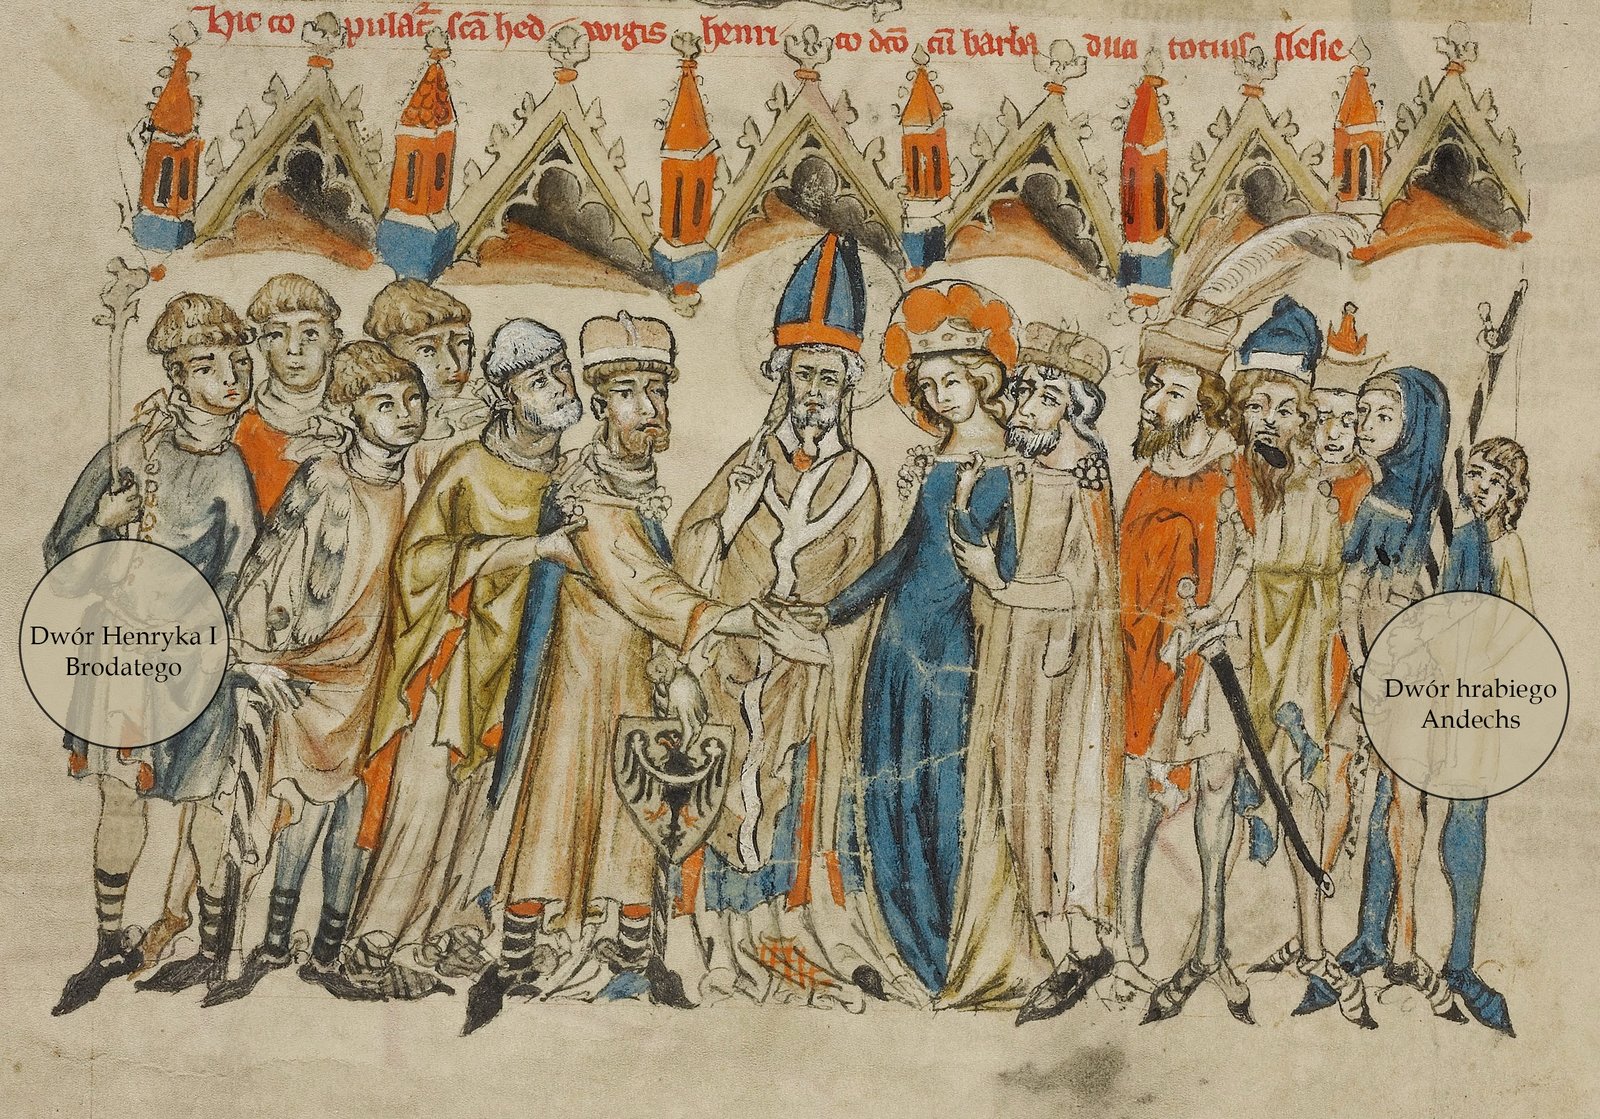 Hic copulat᷑ scā hedwigis henrico dc̄o cū barba duci totius slesie
Dwór Henryka I
Brodatego
Dwór hrabiego
Andechs